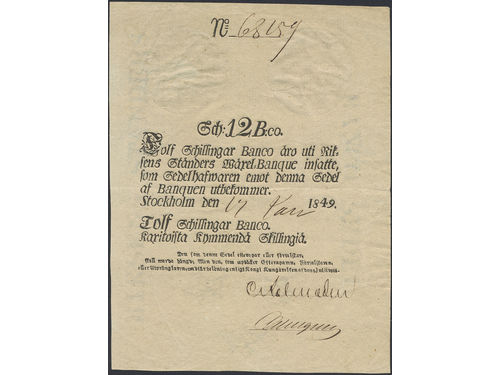 No 68159
Sch: 12 B:co.
Tolf Schillingar Banco äro uti Rik-
sens Ständers Wäxel-Banque insatte,
som Sedelhafwaren emot denna Sedel
af Banquen utbekommer.
Stockholm den 17 Jan 1849.
Tolf Schillingar Banco.
Kaxitoista Kymmendä Skillingiä.
Den som denna Sedel eftergör eller förfalskar,
skall warda hängd; Men den, som uptäcker Eftergöraren, Förfalskaren,